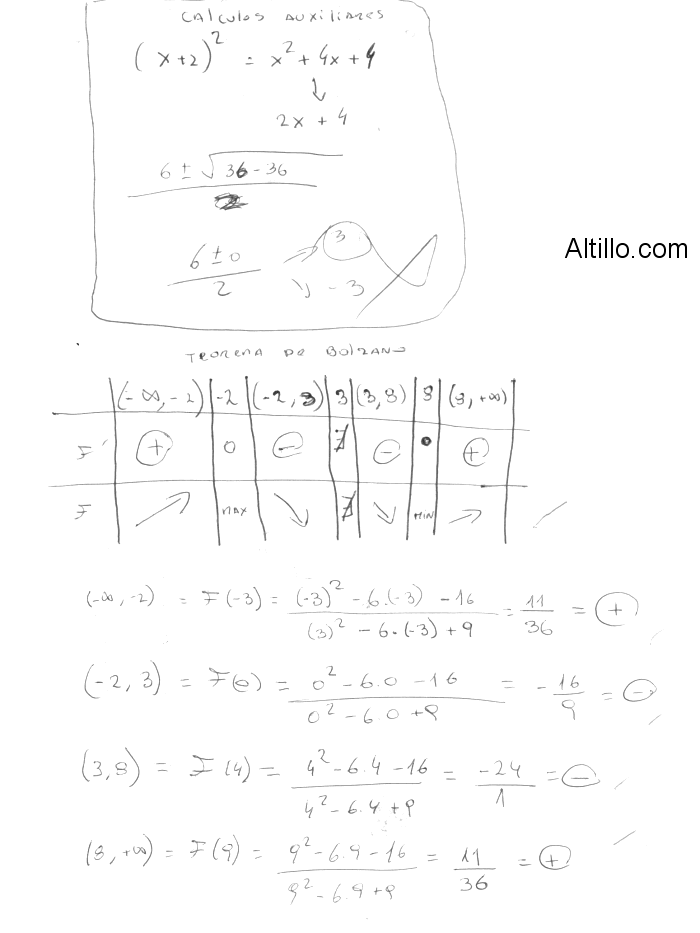 CALCULOS AUXILIARES
(x+2)² = x² + 4x + 4
↓
2x + 4
6 ± √36 - 36
2
6 ± 0 → 3
2 ↘ - 3
Altillo.com
TEOREMA DE BOLZANO
(-∞, -2) -2 (-2, 3) 3 (3, 8) 8 (8, +∞)
F' + 0 - ∄ - 0 +
F ↗ MAX ↘ ∄ ↘ MIN ↗
(-∞, -2) = F(-3) = (-3)² - 6.(-3) - 16 / (3)² - 6.(-3) + 9 = 11/36 = +
(-2, 3) = F(0) = 0² - 6.0 - 16 / 0² - 6.0 + 9 = - 16/9 = -
(3, 8) = F(4) = 4² - 6.4 - 16 / 4² - 6.4 + 9 = -24/1 = -
(8, +∞) = F(9) = 9² - 6.9 - 16 / 9² - 6.9 + 9 = 11/36 = +